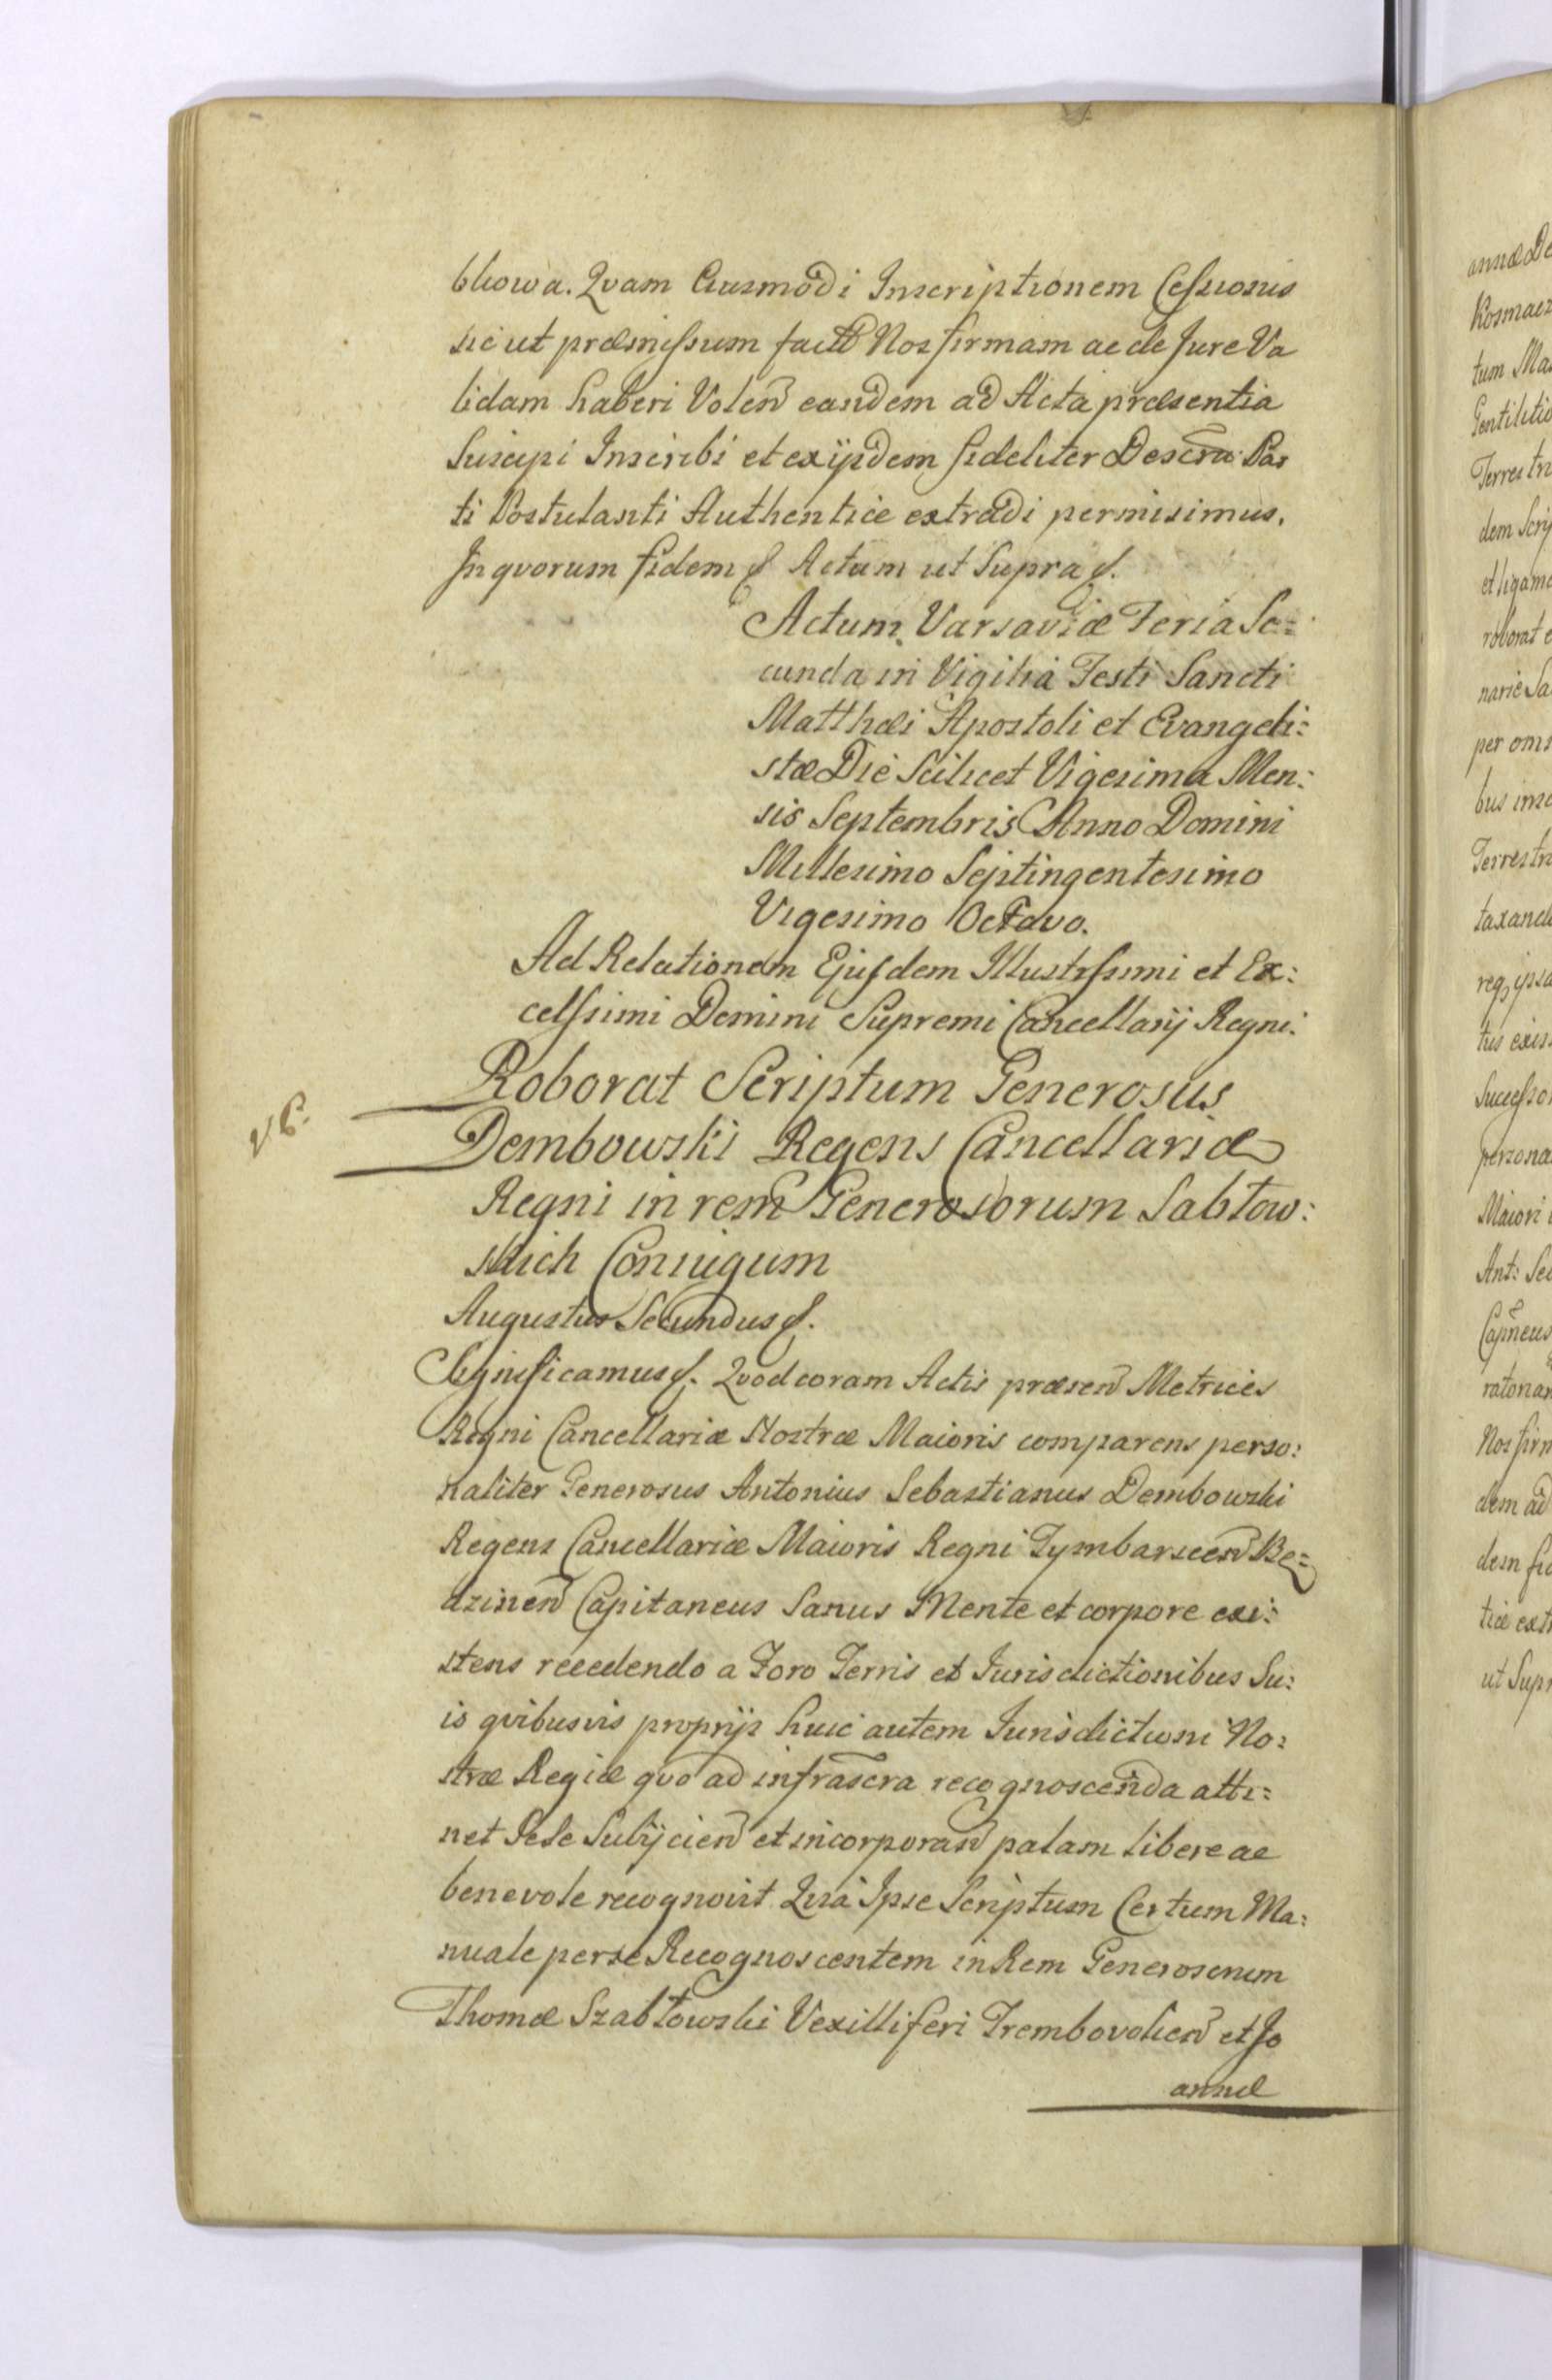 bkowa. Qvam Eiusmodi Inscriptionem Cessionis
sic ut præmissum fact Nos firmam ac de Jure Va
lidam haberi Volen eandem ad Acta præsentia
Suscipi Inscribi et ex ijsdem fideliter Descra: Par
ti Postulanti Authentice extradi permisimus.
In qvorum fidem &. Actum ut Supra &.
Actum Varsaviæ Feria Se=
cunda in Vigilia Festi Sancti
Matthæi Apostoli et Evangeli:
stæ Die Scilicet Vigesima Men:
sis Septembris Anno Domini
Millesimo Septingentesimo
Vigesimo Octavo.
Ad Relationem Ejusdem Illustrssimi et Ex:
celssimi Domini Supremi Cancellarij Regni:
Roborat Scriptum Generosus
Dembowski Regens Cancellariæ
Regni in rem Generosorum Sabłow:
skich Coniugum
Augustus Secundus &.
Significamus &. Qvod coram Actis præsen Metrices
Regni Cancellariæ Nostræ Maioris comparens perso:
naliter Generosus Antonius Sebastianus Dembowski
Regens Cancellariæ Maioris Regni Tymbarscen Be=
dzinen Capitaneus Sanus Mente et corpore exi:
stens recedendo a Foro Terris et Iurisdictionibus Su:
is qvibusvis proprijs huic autem Iurisdictioni No:
stræ Regiæ qvo ad infrascra recognoscenda atti:
net Sese Subijcien et incorporan palam libere ac
benevole recognovit Qvia Ipse Scriptum Certum Ma:
nuale per se Recognoscentem in Rem Generosorum
Thomæ Szabłowski Vexilliferi Trembovolien et Jo
annæ